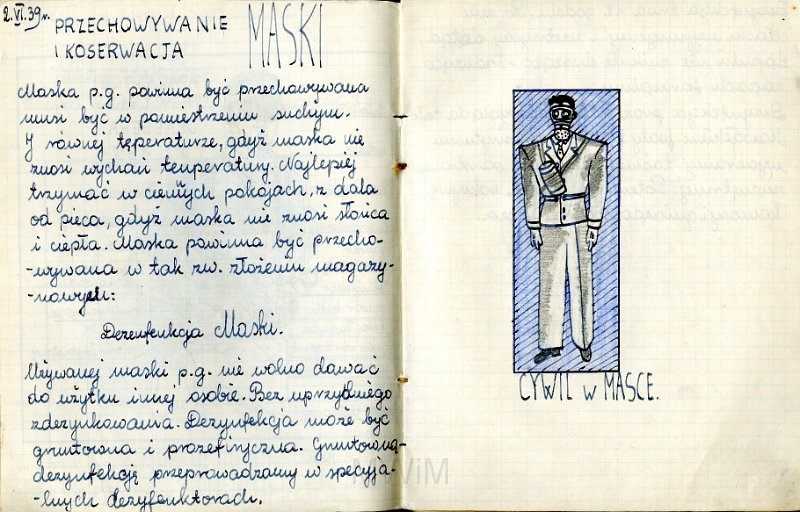 2.VI.39r.
PRZECHOWYWANIE
I KOSERWACJA
MASKI
Maska p.g. powinna być przechowywana
musi być w powiestrzeniu suchym.
I równej teperaturze, gdyż maska nie
znosi wychań temperatury. Najlepiej
trzymać w ciemnych pokojach, z dala
od pieca, gdyż maska nie znosi słońca
i ciepła. Maska powinna być przecho-
-wywana w tak zw. złożeniu magazy-
-nowych:
Dezenfenkcja Maski.
Używanej maski p.g. nie wolno dawać
do użytku innej osobie. Bez uprzydniego
zdezynkowania. Dezynfekcja może być
gruntowna i prozefiryczna. Gruntowną
dezynfekcję przeprowadzamy w specyja-
-lnych dezyfenktorach.
CYWIL W MASCE.
MWiM